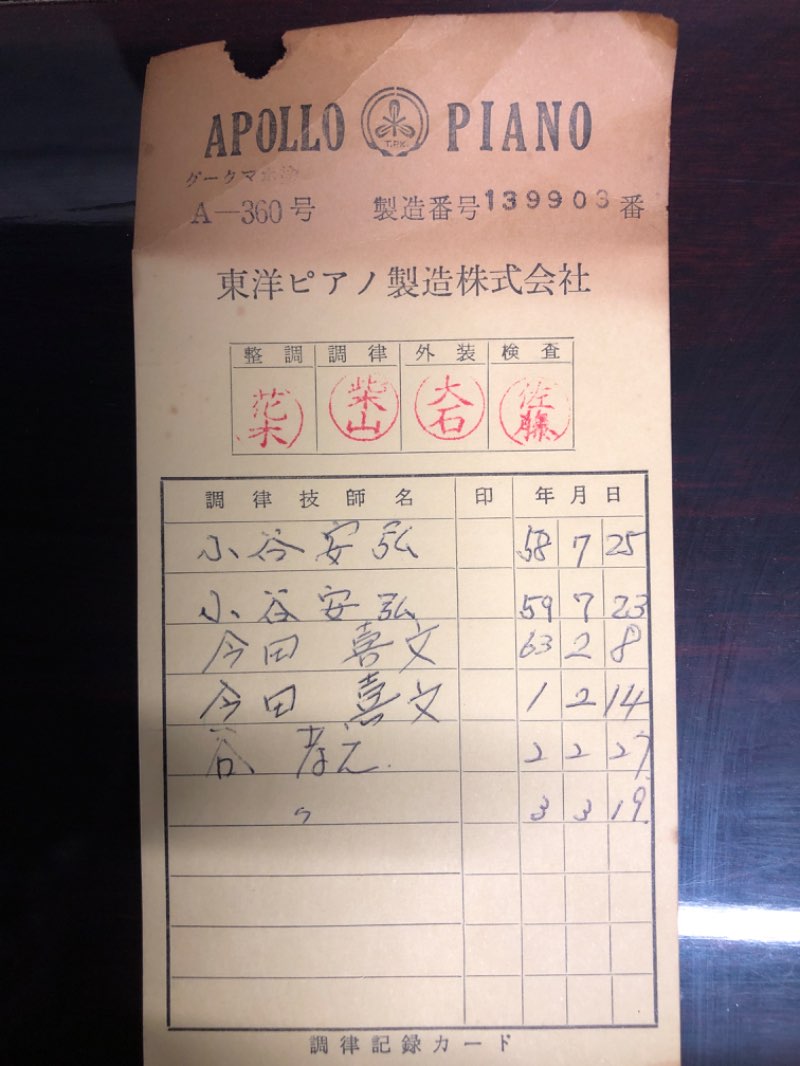 APOLLO T.P.K. PIANO
ダークマ
A—360号 製造番号139903番
東洋ピアノ製造株式会社
整調 調律 外装 検査
花木 柴山 大石 佐藤
調律技師名 印 年月日
小谷安弘 58 7 25
小谷安弘 59 7 23
今田 喜文 63 2 8
今田 喜文 1 2 14
谷 孝 2 2 27
〃 3 3 19
調律記録カード